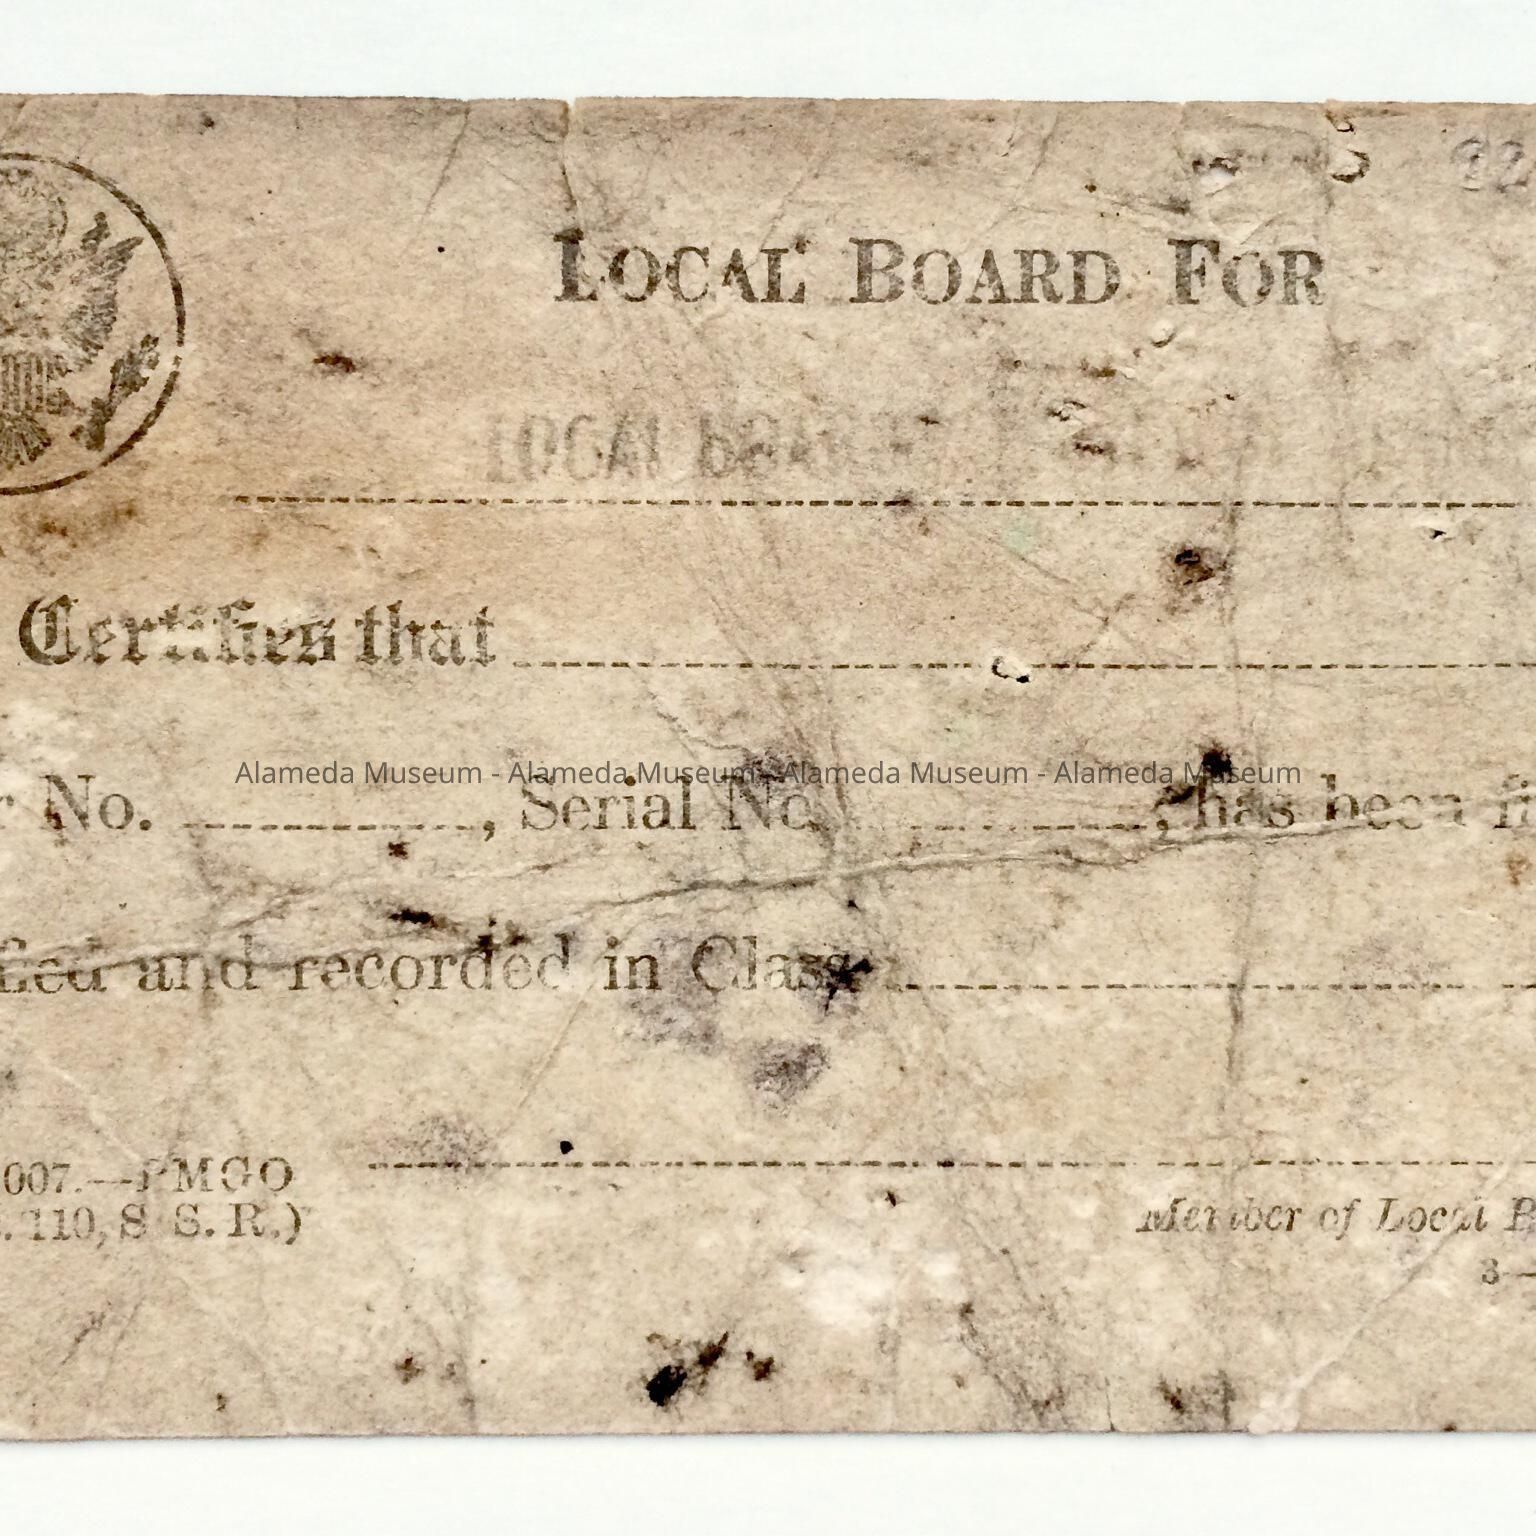 LOCAL BOARD FOR
LOCAL BOA
Certifies that
No. , Serial No. ; has been fi
fied and recorded in Class
Alameda Museum - Alameda Museum - Alameda Museum - Alameda Museum
007.—PMGO
. 110, S S. R.)
Member of Local B
3—